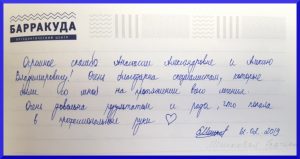 БАРРАКУДА
Огромное спасибо Анастасии Александровне и Алексею
Владимировичу! Очень благодарна специалистам, которые
вели со мной на протяжении всего лечения.
Очень довольна результатом и рада, что попала
в профессиональные руки ♡
2019